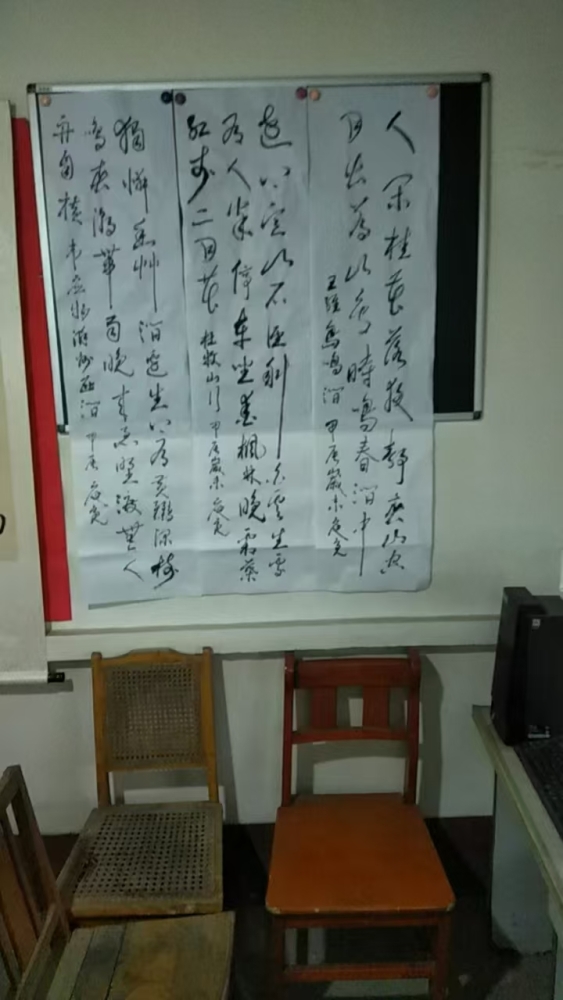 人閑桂花落夜靜春山空
月出驚山鳥時鳴春澗中
王維鳥鳴澗 甲辰歲末
遠上寒山石徑斜白雲生處
有人家停車坐愛楓林晚霜葉
紅於二月花 杜牧山行 甲辰歲末
獨憐幽草澗邊生上有黃鸝深樹
鳴春潮帶雨晚來急野渡無人
舟自橫 韋應物滁州西澗 甲辰